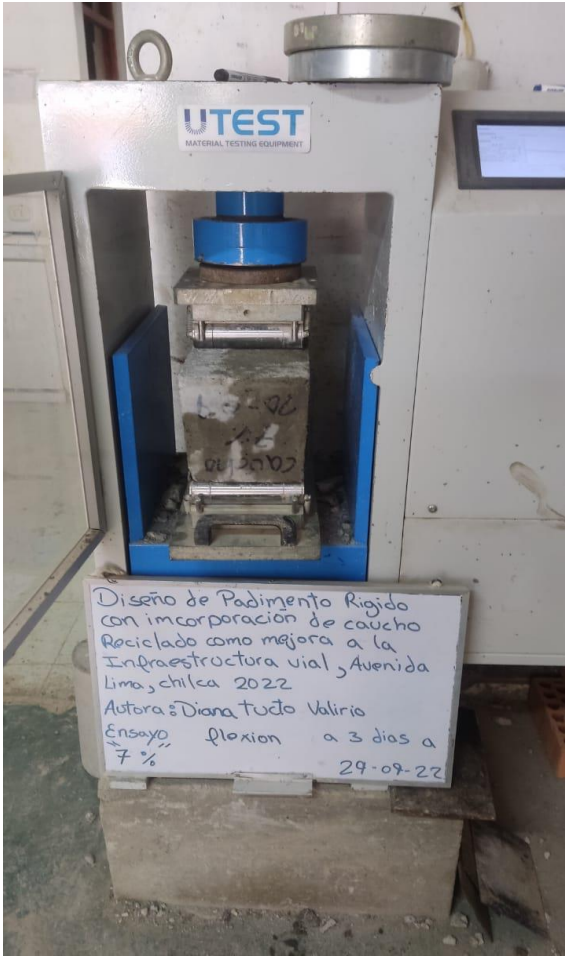 UTEST
MATERIAL TESTING EQUIPMENT
caucho
7%
Diseño de Padimento Rigido
con imcorporación de caucho
Reciclado como mejora a la
Infraestructura vial, Avenida
Lima, chilca 2022
Autora: Diana Tucto Valirio
Ensayo flexion a 3 dias a
"7%"
29-09-22